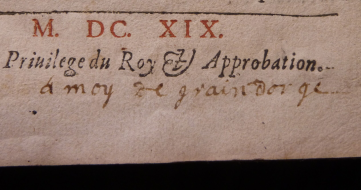 M. DC. XIX.
Priuilege du Roy & Approbation.
A moy de graindorge